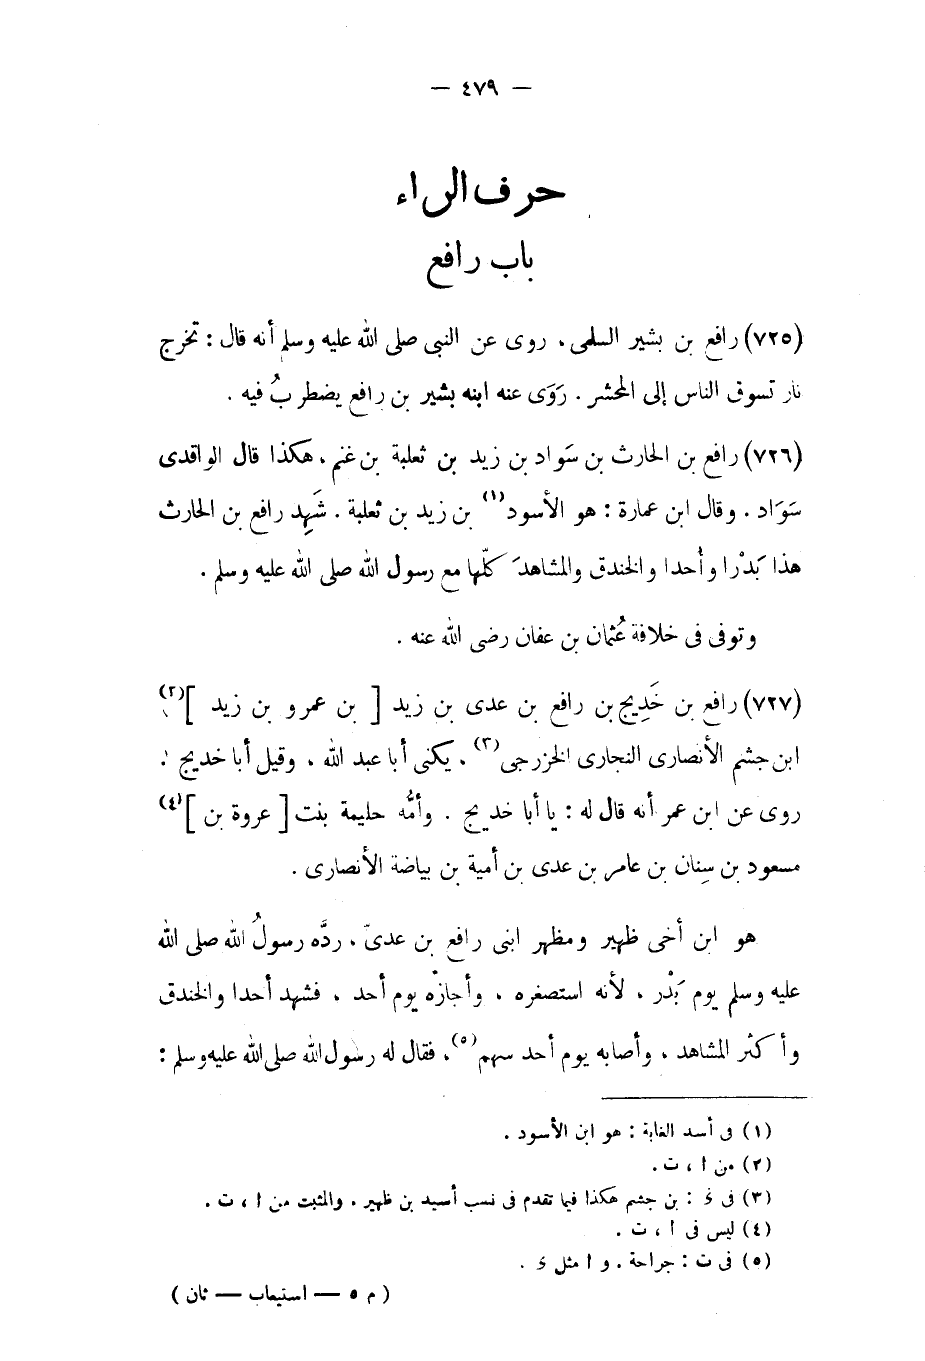 — ٤٧٩ —
حرف الراء
باب رافع
(٧٢٥) رافع بن بشير السلمى ، روى عن النبى صلى الله عليه وسلم أنه قال : تخرج
نار تسوق الناس إلى المحشر . رَوَى عنه ابنه بشير بن رافع يضطربُ فيه .
(٧٢٦) رافع بن الحارث بن سَواد بن زيد بن ثعلبة بن غنم ، هكذا قال الواقدى
سَوَاد . وقال ابن عمارة : هو الأسود(١) بن زيد بن ثعلبة . شَهِد رافع بن الحارث
هذا بَدْرا وأُحدا والخندق والمشاهدَ كلّها مع رسول الله صلى الله عليه وسلم .
وتوفى فى خلافة عُثمان بن عفان رضى الله عنه .
(٧٢٧) رافع بن خَدِيج بن رافع بن عدى بن زيد [ بن عمرو بن زيد ](٢)
ابن جشم الأنصارى النجارى الخزرجى(٣) ، يكنى أبا عبد الله ، وقيل أبا خديج ؛
روى عن ابن عمر أنه قال له : يا أبا خديج . وأمُّه حليمة بنت [ عروة بن ](٤)
مسعود بن سِنان بن عامر بن عدى بن أمية بن بياضة الأنصارى .
هو ابن أخى ظهير ومظهر ابنى رافع بن عدىّ ، ردَّه رسولُ الله صلى الله
عليه وسلم يوم بَدْر ، لأنه استصغره ، وأجازْه يوم أحد ، فشهد أحدا والخندق
وأكثر المشاهد ، وأصابه يوم أحد سهم(٥) ، فقال له رسول الله صلى الله عليه وسلم :
(١) فى أسد الغابة : هو ابن الأسود .
(٢) من ا ، ت .
(٣) فى ئ : بن جشم هكذا فيما تقدم فى نسب أسيد بن ظهير . والمثبت من ا ، ت .
(٤) ليس فى ا ، ت .
(٥) فى ت : جراحة . و ا مثل ئ .
( م ٥ — استيعاب — ثان )